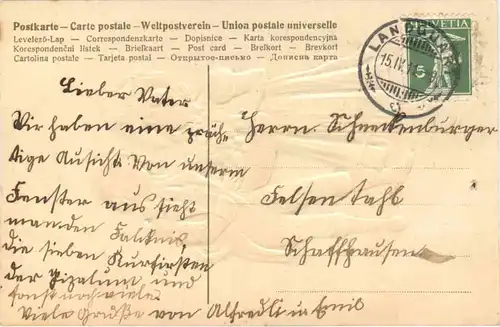 Postkarte – Carte postale – Weltpostverein – Union postale universelle
Levelező-Lap — Correspondenzkarte — Dopisnice — Karta korespondencyjna
Korespondenční lístek — Briefkaart — Post card — Brefkort — Brevkort
Cartolina postale — Tarjeta postal — Открытое-письмо — Дописна карта
HELVETIA
5
LANDQUART
15.IX.
Lieber Vater
Wir haben eine präch
tige Aussicht. Von unserm
Fenster aus sieht
man den Falknis,
die sieben Kurfirsten
der Pizalum und
sonst noch viele
Viele Grüße von Alfredli u Emil
Herrn. Schneckenburger
Felsentahl
Schaffhausen